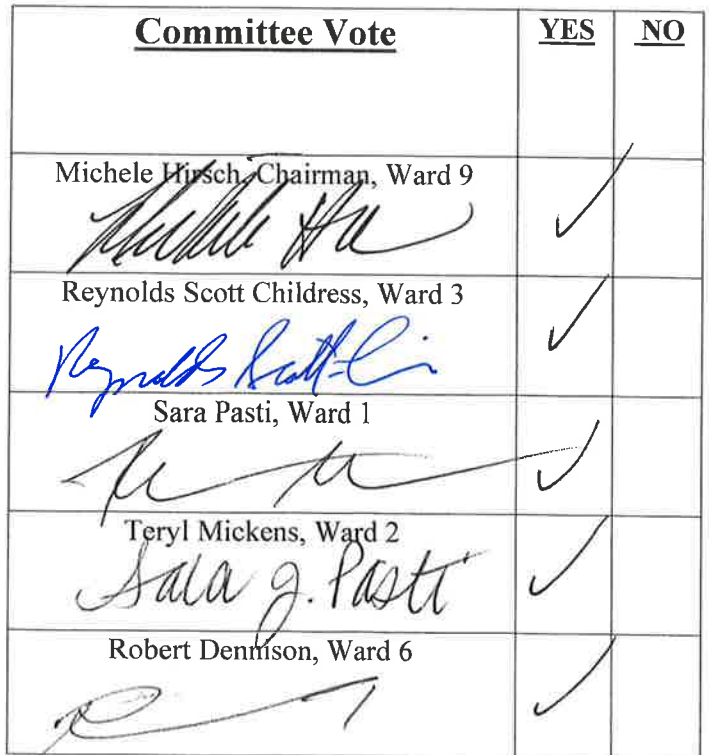 Committee Vote YES NO
Michele Hirsch, Chairman, Ward 9
Reynolds Scott Childress, Ward 3
Reynolds Scott-
Sara Pasti, Ward 1
Teryl Mickens, Ward 2
Sara J. Pasti
Robert Dennison, Ward 6